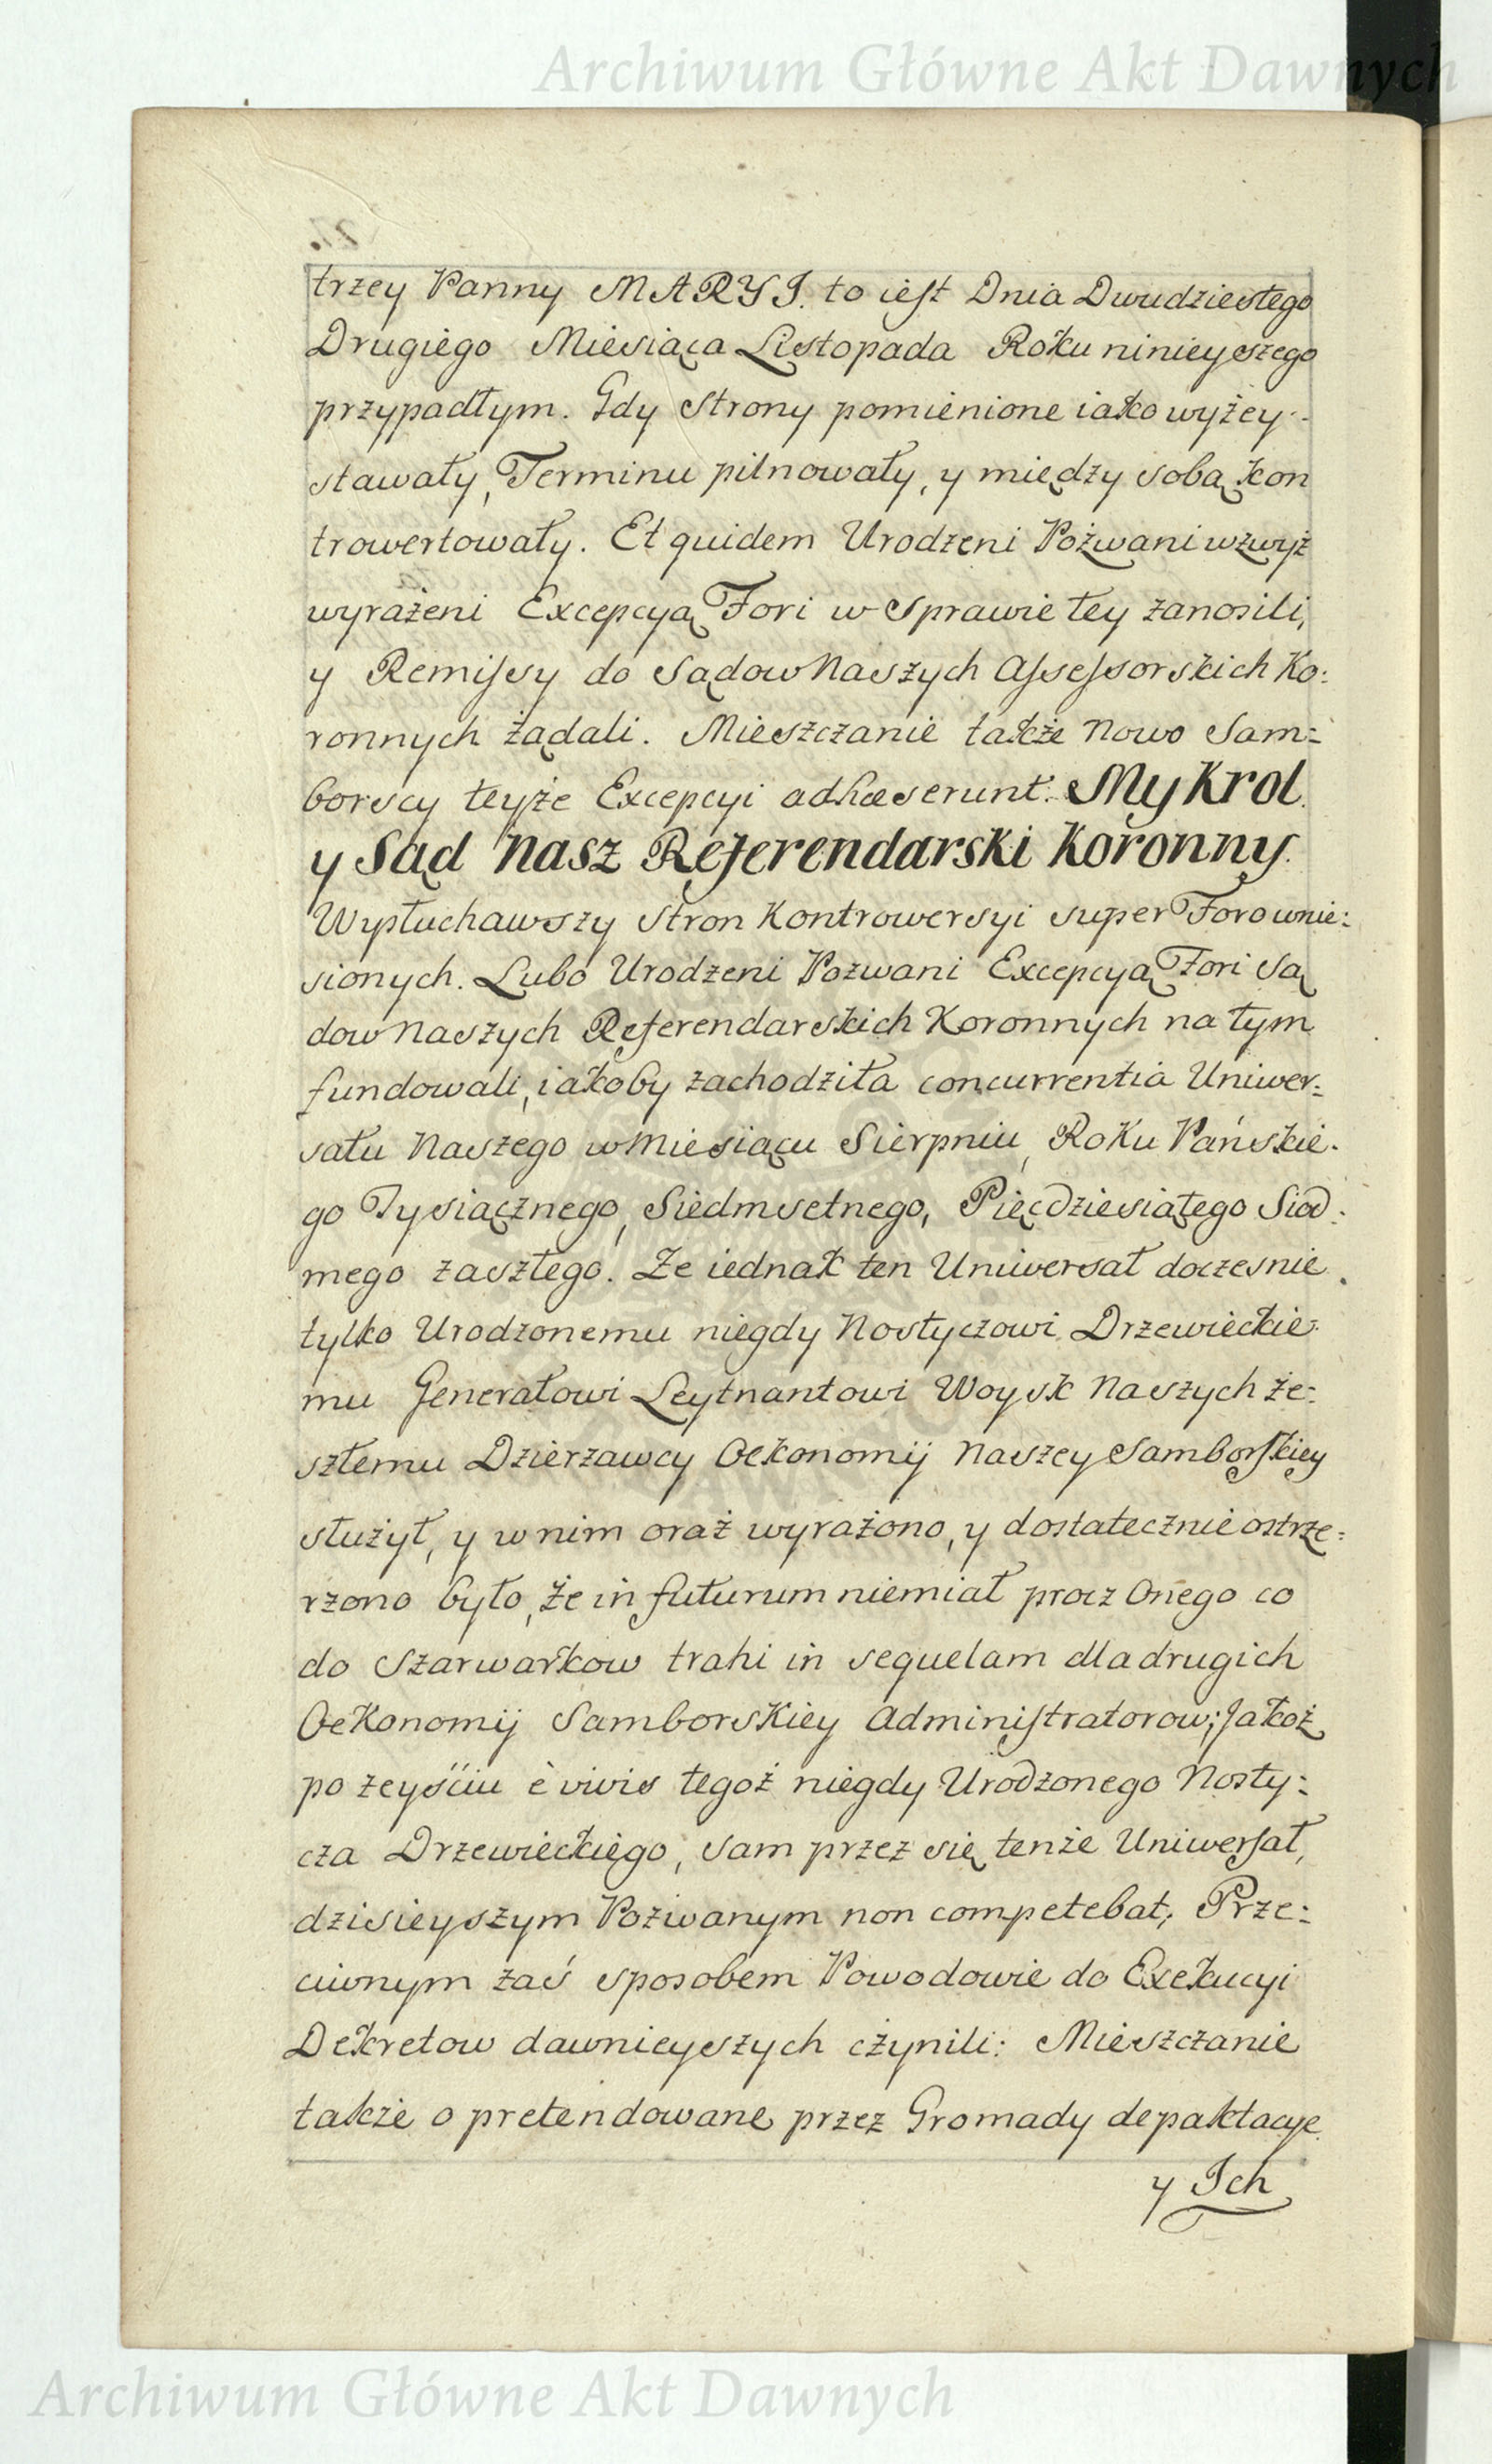 Archiwum Główne Akt Dawnych
trzey Panny MARYI. to iest Dnia Dwudziestego
Drugiego Miesiąca Listopada Roku ninieyszego
przypadłym. Gdy Strony pomienione iako wyżey
stawały, Terminu pilnowały, y między sobą kon
trowertowały. Et quidem Urodzeni Pożwani wzwyż
wyrażeni Excepcyą Fori w Sprawie tey zanosili,
y Remissy do Sądow Naszych Assessorskich Ko:
ronnych żądali. Mieszczanie także Nowo Sam:
borscy teyże Excepcyi adhæserunt. My Krol
y Sąd Nasz Referendarski Koronny.
Wysłuchawszy Stron Kontrowersyi super Foro wnie:
sionych. Lubo Urodzeni Pozwani Excepcyą Fori Są
dow Naszych Referendarskich Koronnych na tym
fundowali, iakoby zachodziła concurrentia Uniwer:
sału Naszego w Miesiącu Sierpniu, Roku Pańskie.
go Tysiącznego, Siedmsetnego, Pięcdziesiątego Siod:
mego zaszłego. Ze iednak ten Uniwersał doczesnie
tylko Urodzonemu niegdy Nostyczowi Drzewieckie:
mu Generałowi Leytnantowi Woysk Naszych ze:
szłemu Dzierzawcy Oekonomij Naszey Samborskiey
służył, y w nim oraż wyrażono, y dostatecznie ostrze:
rzono było, że in futurum niemiał procz Onego co
do Szarwarkow trahi in sequelam dla drugich
Oekonomij Samborskiey Administratorow; Jakoż
po zeyściu è vivis tegoż niegdy Urodzonego Nosty:
cza Drzewieckiego, sam przez się tenże Uniwersał,
dzisieyszym Pozwanym non competebat; Prze:
ciwnym zaś sposobem Powodowie do Exekucyi
Dekretow dawnieyszych czynili: Mieszczanie
także o pretendowane przez Gromady depaktacye
y Ich
Archiwum Główne Akt Dawnych